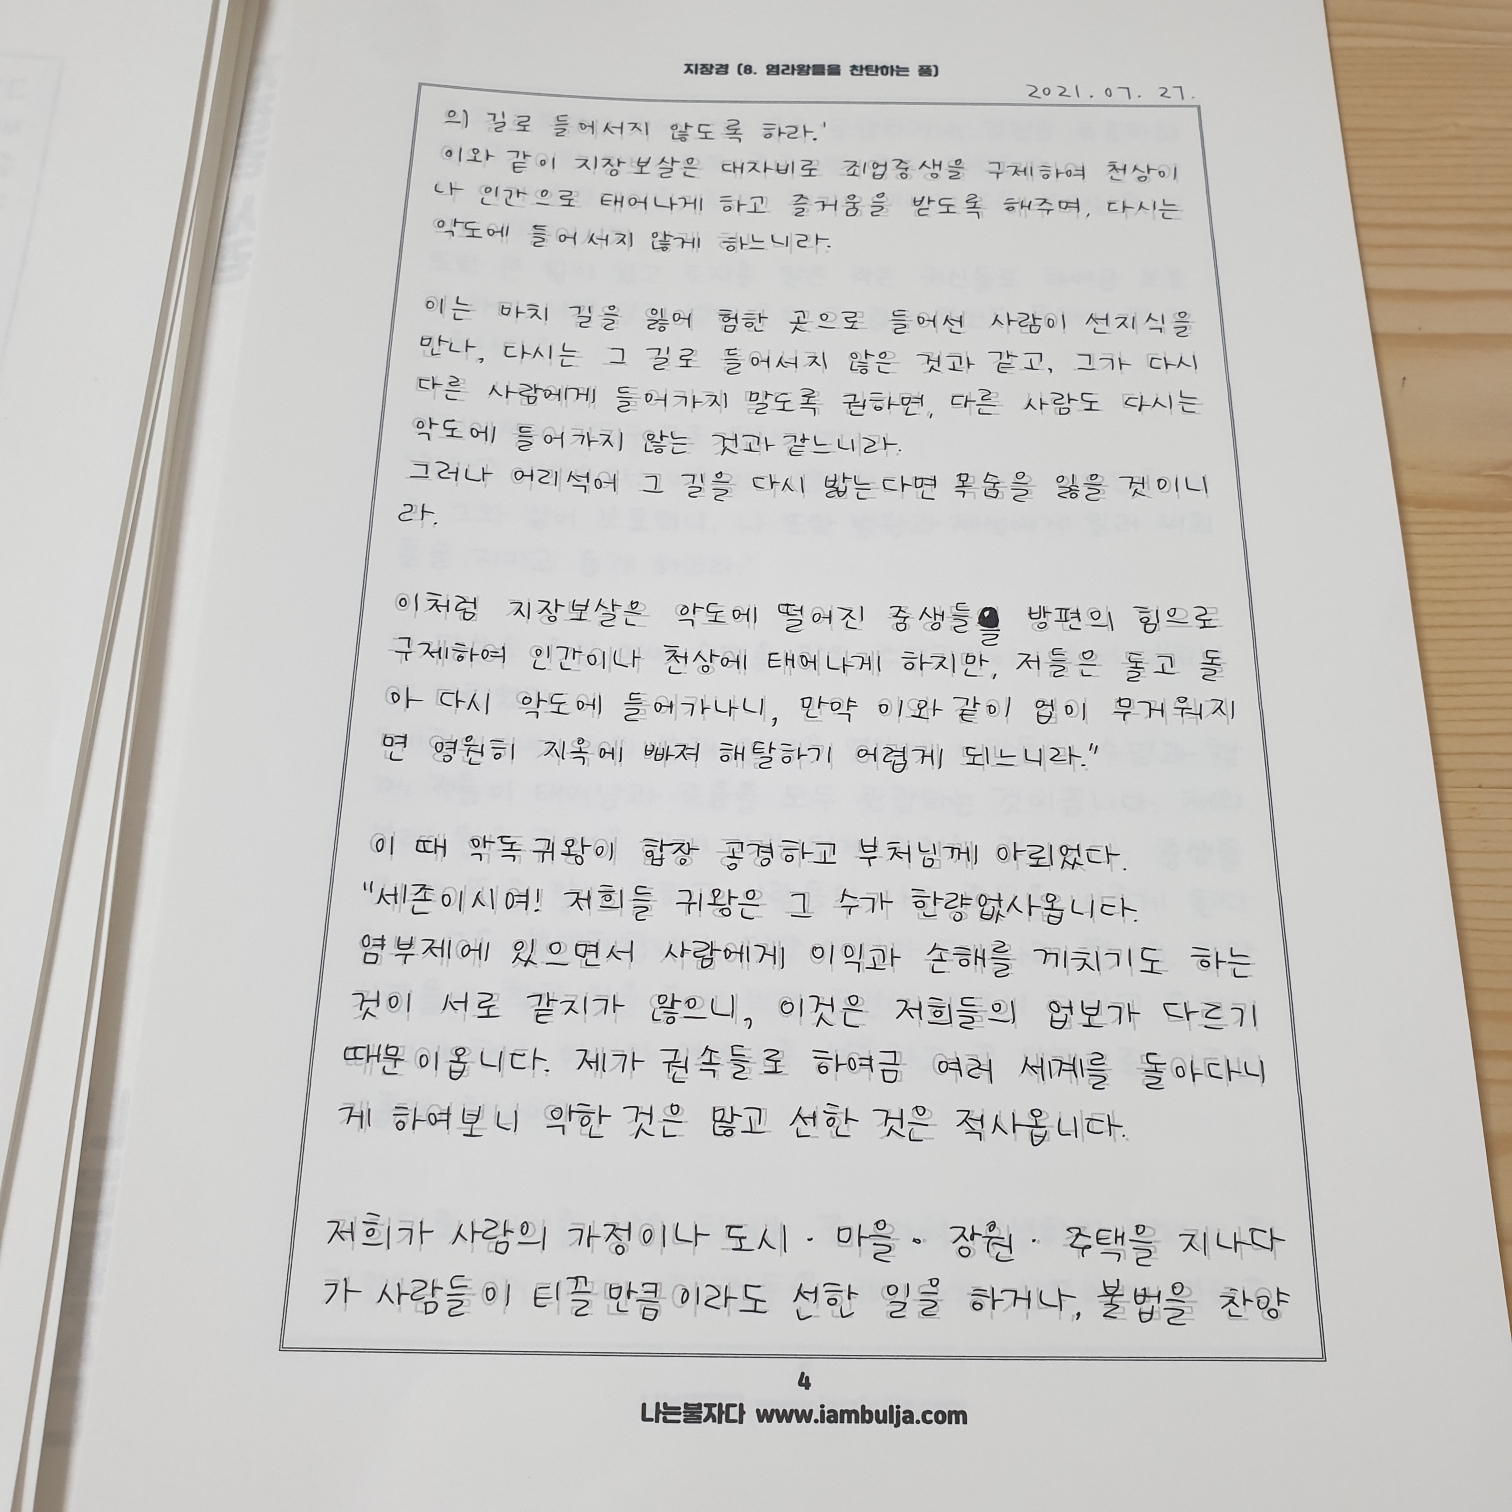 지장경 (8. 염라왕들을 찬탄하는 품)
2021.07.27.
의 길로 들어서지 않도록 하라.'
이와 같이 지장보살은 대자비로 죄업중생을 구제하여 천상이
나 인간으로 태어나게 하고 즐거움을 받도록 해주며, 다시는
악도에 들어서지 않게 하느니라.
이는 마치 길을 잃어 험한 곳으로 들어선 사람이 선지식을
만나, 다시는 그 길로 들어서지 않은 것과 같고, 그가 다시
다른 사람에게 들어가지 말도록 권하면, 다른 사람도 다시는
악도에 들어가지 않는 것과 같느니라.
그러나 어리석에 그 길을 다시 밟는다면 목숨을 잃을 것이니
라.
이처럼 지장보살은 악도에 떨어진 중생들을 방편의 힘으로
구제하여 인간이나 천상에 태어나게 하지만, 저들은 돌고 돌
아 다시 악도에 들어가나니, 만약 이와 같이 업이 무거워지
면 영원히 지옥에 빠져 해탈하기 어렵게 되느니라."
이 때 악독귀왕이 합장 공경하고 부처님께 아뢰었다.
"세존이시여! 저희들 귀왕은 그 수가 한량없사옵니다.
염부제에 있으면서 사람에게 이익과 손해를 끼치기도 하는
것이 서로 같지가 않으니, 이것은 저희들의 업보가 다르기
때문이옵니다. 제가 권속들로 하여금 여러 세계를 돌아다니
게 하여보니 악한 것은 많고 선한 것은 적사옵니다.
저희가 사람의 가정이나 도시·마을·장원·주택을 지나다
가 사람들이 티끌만큼이라도 선한 일을 하거나, 불법을 찬양
4
나는불자다 www.iambulja.com